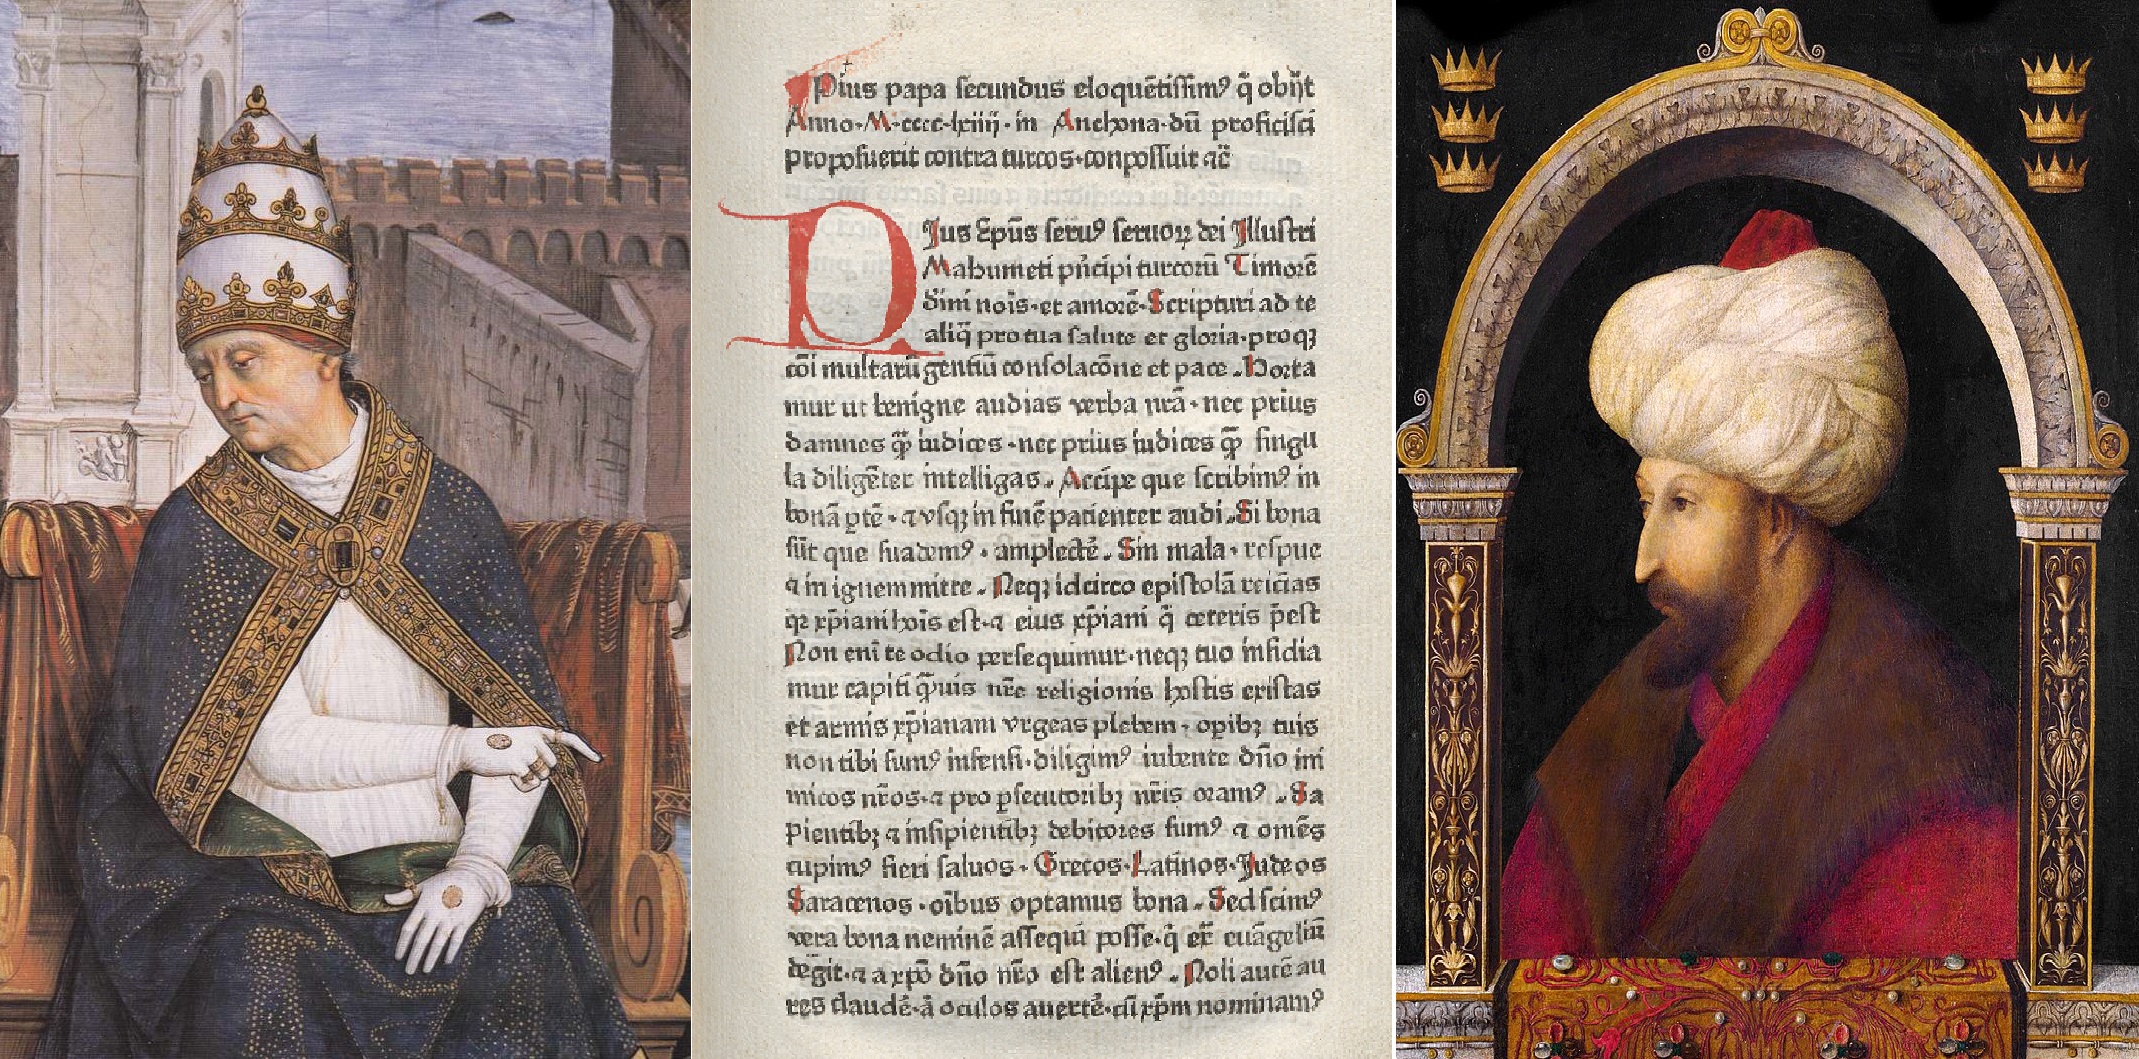 Pius papa secundus eloquētissimꝰ q̄ obijt
Anno·M·cccc·lxiiij·in Anchona·dū proficisci
proposuerit contra turcos·conpossuit ⁊c̄
PIus Ep̄us seruꝰ seruoꝝ dei Illustri
Mahumeti pn̄cipi turcorū Timorē
diīni nois·et amorē·Scripturi ad te
aliq̄ pro tua salute et gloria·proqꝫ
cōi multarū gentiū consolacōne et pace. Horta
mur ut benigne audias verba nrā·nec prius
damnes qꝙ̄ iudices·nec prius iudices qꝙ̄ singu
la diligēter intelligas. Accipe que scribimꝰ in
bonā ꝑtē·⁊ vsqꝫ in finē patienter audi. Si bona
sūt que suademꝰ·amplectē. Sin mala·respue
⁊ in ignem mitte. Neqꝫ idcirco epistolā reicias
qꝛ xp̄iani hoīs est·⁊ eius xp̄iani q̄ ceteris p̄est
Non eni te odio persequimur·neqꝫ tuo insidia
mur capiti q̄ꝫuis nr̄e religionis hostis existas
et armis xp̄ianam vrgeas plebem·opibꝫ tuis
non tibi sumꝰ infensi·diligimꝰ iubente dn̄o ini
micos nr̄os·⁊ pro ꝑsecutoribꝫ nr̄is oramꝰ. Sa
pientibꝫ ⁊ insipientibꝫ debitores sumꝰ ⁊ omēs
cupimꝰ fieri saluos. Grecos·Latinos·Iudeos
Saracenos·oībus optamus bona. Sed scimꝰ
vera bona neminē assequi posse·q̄ ex̄ euāgeliū
degit·⁊ a xp̄o dn̄o nr̄o est alienꝰ. Noli autē au
res claudē·ā oculos auertē·cū xp̄m nominamꝰ